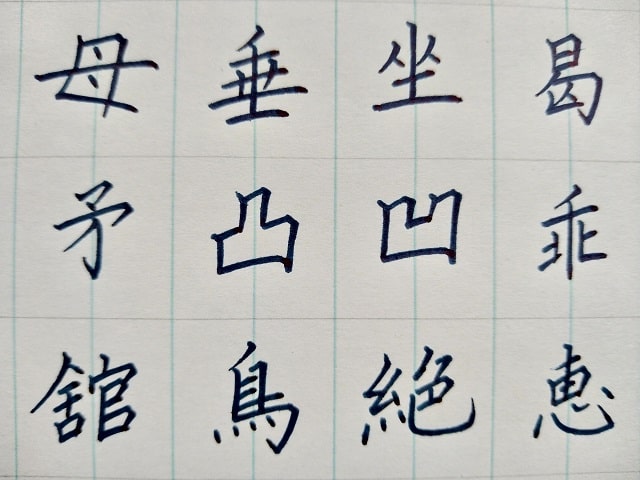 母 垂 坐 曷
矛 凸 凹 乖
舘 鳥 絶 恵